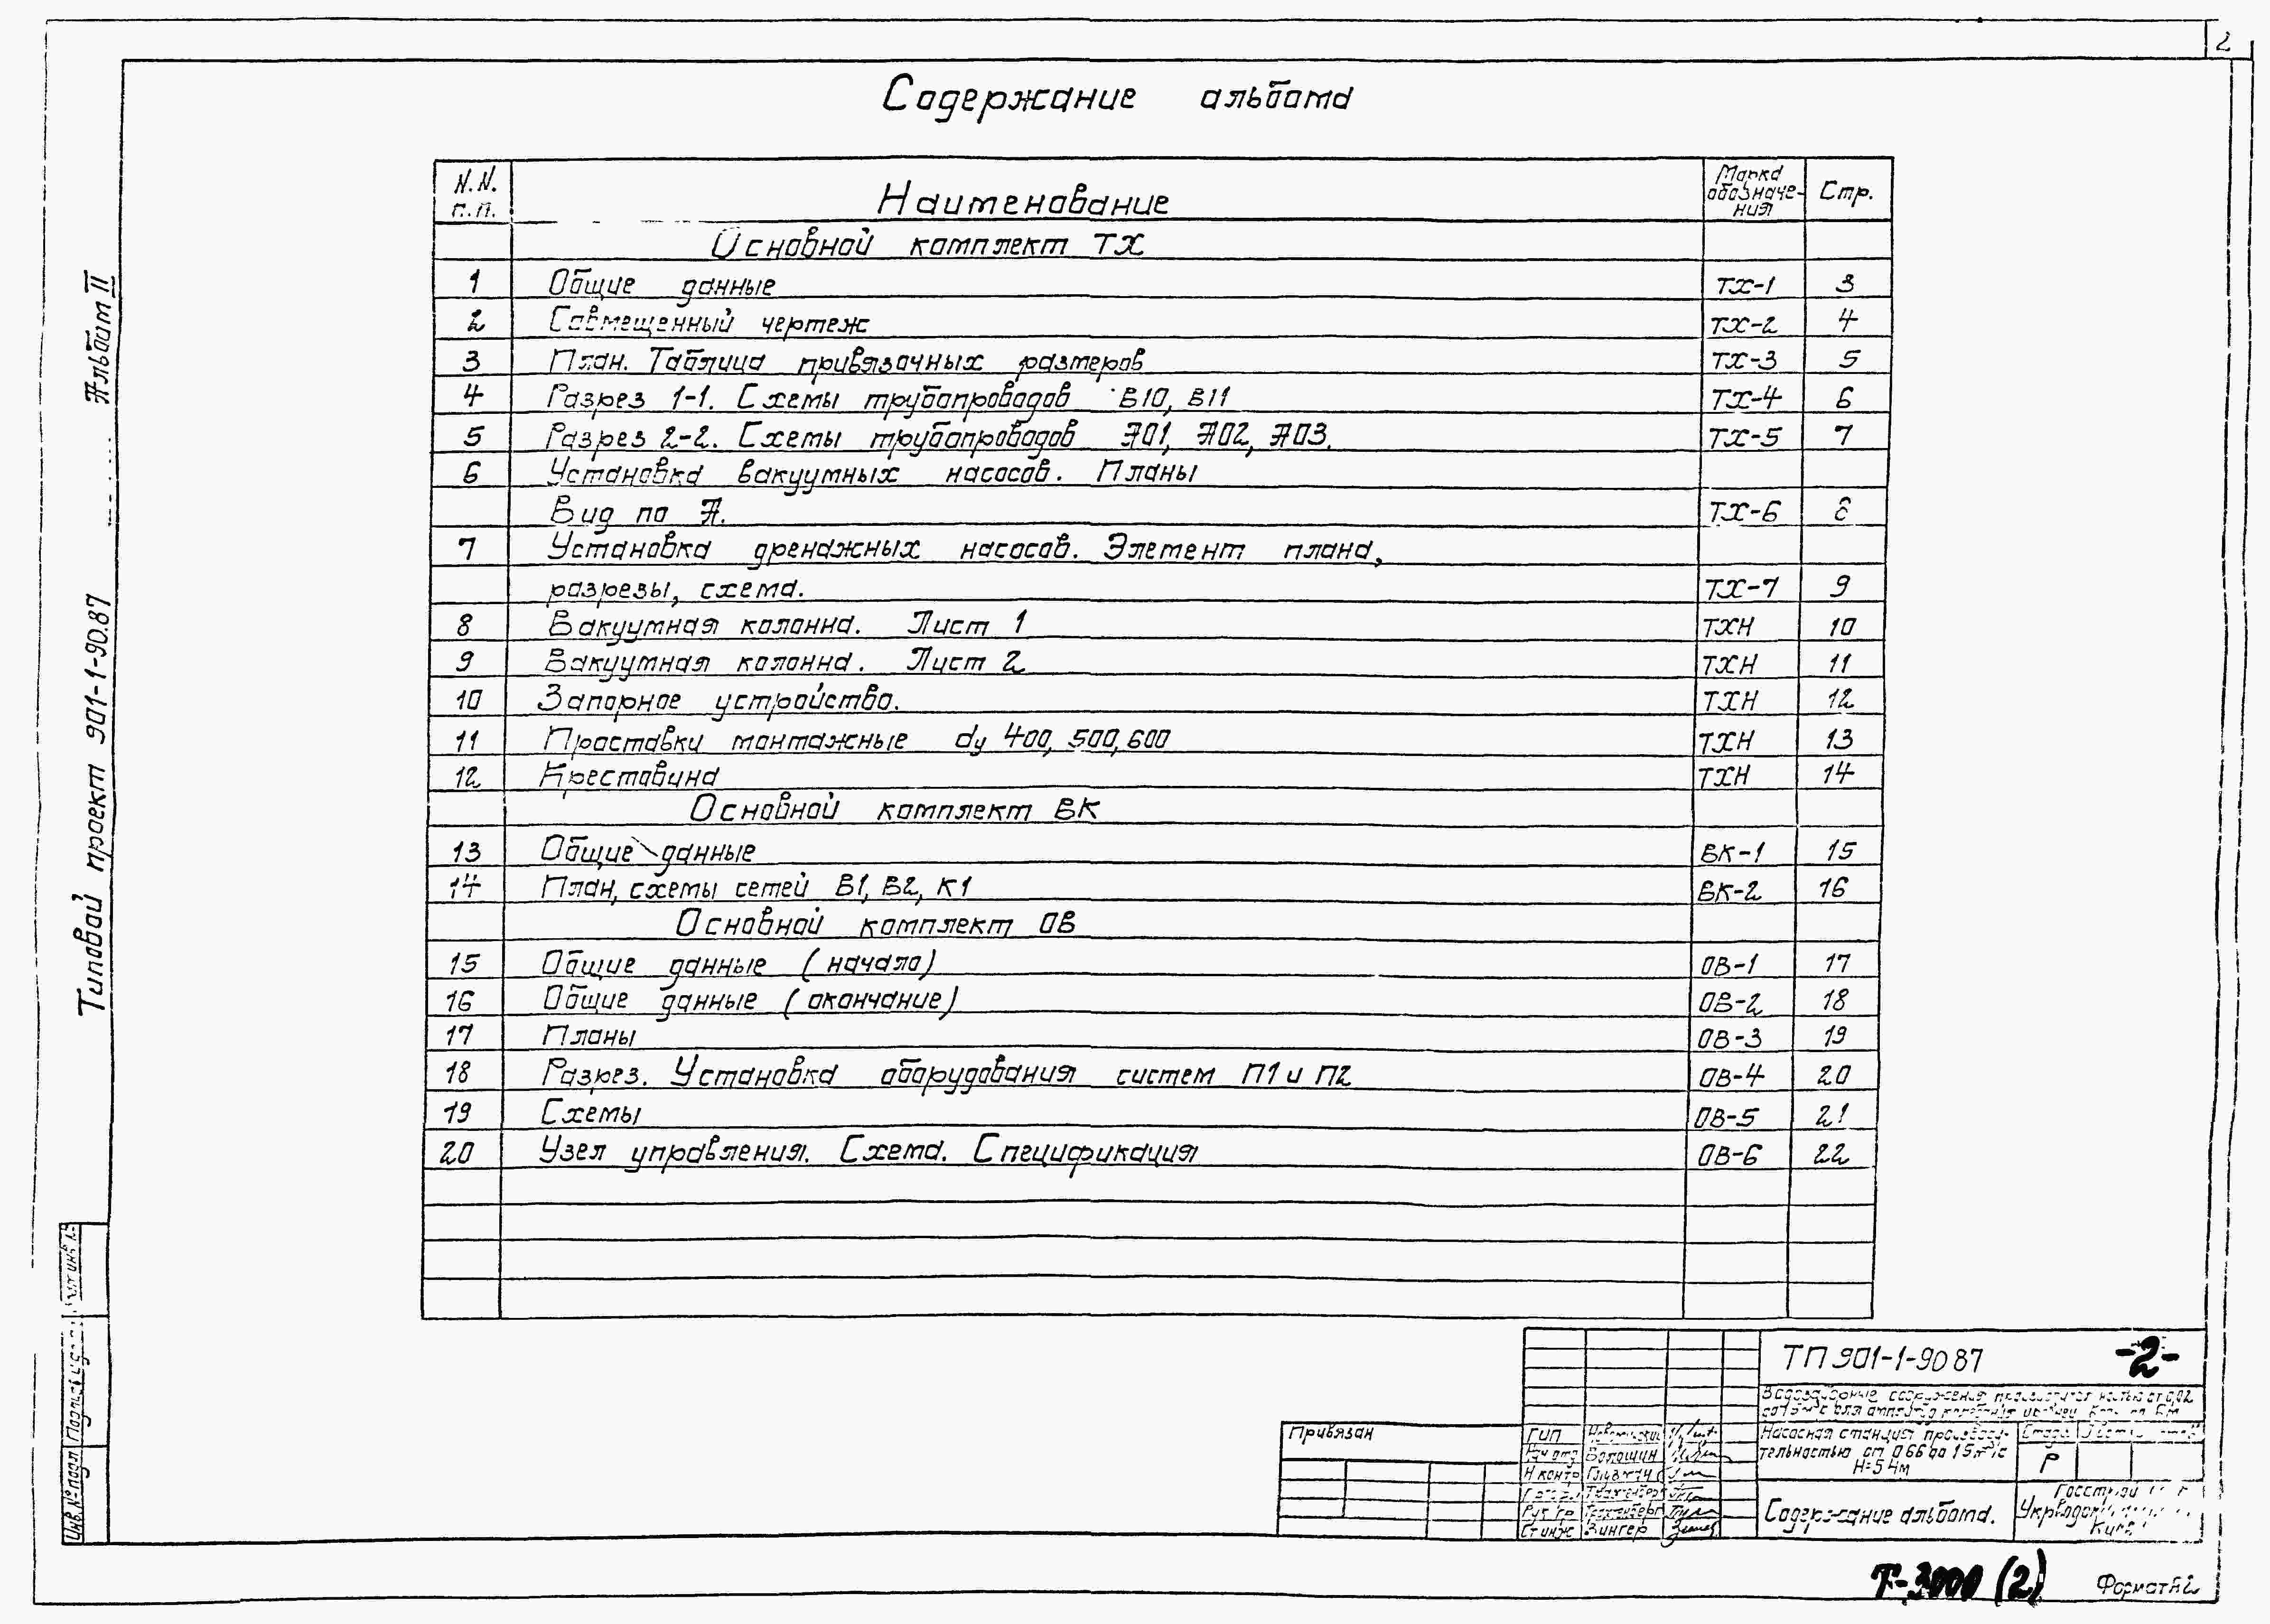 2
Содержание альбома
N.N. п.п. Наименование Марка обозначения Стр.
Основной комплект ТХ
1 Общие данные ТХ-1 3
2 Совмещенный чертеж ТХ-2 4
3 План. Таблица привязочных размеров ТХ-3 5
4 Разрез 1-1. Схемы трубопроводов В10, В11 ТХ-4 6
5 Разрез 2-2. Схемы трубопроводов А01, А02, А03. ТХ-5 7
6 Установка вакуумных насосов. Планы
Вид по А. ТХ-6 8
7 Установка дренажных насосов. Элемент плана,
разрезы, схема. ТХ-7 9
8 Вакуумная колонна. Лист 1 ТХН 10
9 Вакуумная колонна. Лист 2 ТХН 11
10 Запорное устройство. ТХН 12
11 Проставки монтажные dу 400, 500, 600 ТХН 13
12 Крестовина ТХН 14
Основной комплект ВК
13 Общие данные ВК-1 15
14 План, схемы сетей В1, В2, К1 ВК-2 16
Основной комплект ОВ
15 Общие данные (начало) ОВ-1 17
16 Общие данные (окончание) ОВ-2 18
17 Планы ОВ-3 19
18 Разрез. Установка оборудования систем П1 и П2 ОВ-4 20
19 Схемы ОВ-5 21
20 Узел управления. Схема. Спецификация ОВ-6 22
Типовой проект 901-1-90.87 Альбом II
Инв.№ подл Подпись и
ТП 901-1-90 87 -2-
Водозаборные сооружения
Насосная станция производи-
тельностью от 0 66 до 1 5 м³/с
Н=5 4м
Р
Содержание альбома.
Госстрой
Привязан
ГИП
Нач отд Волошин
Н контр
Рук гр
Ст инж Зингер
Т-3000 (2)
Формат А2